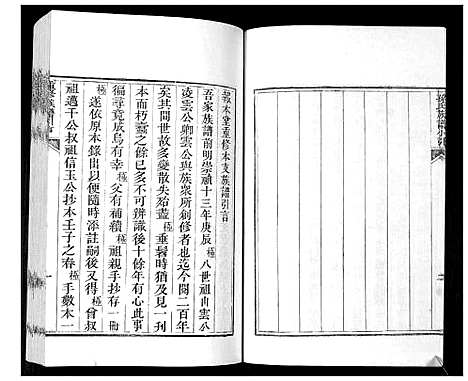 敦本堂羣修本支族譜引言
吾家族譜前明崇禎十三年庚辰八世祖冉雲公
凌雲公卿雲公與族衆所創修者也迄今閱二百年
矣其間世故多變散失殆盡極垂髫時猶及見一刊
本朽蠹之餘已多不可辨識後十餘年有心此事
徧尋竟成烏有幸極父有補續極祖親手抄存一冊
遂依原本錄出以便隨時添註嗣後又得極曾叔
祖邁千公叔祖信玉公抄本壬子之春極手數本一
一
二